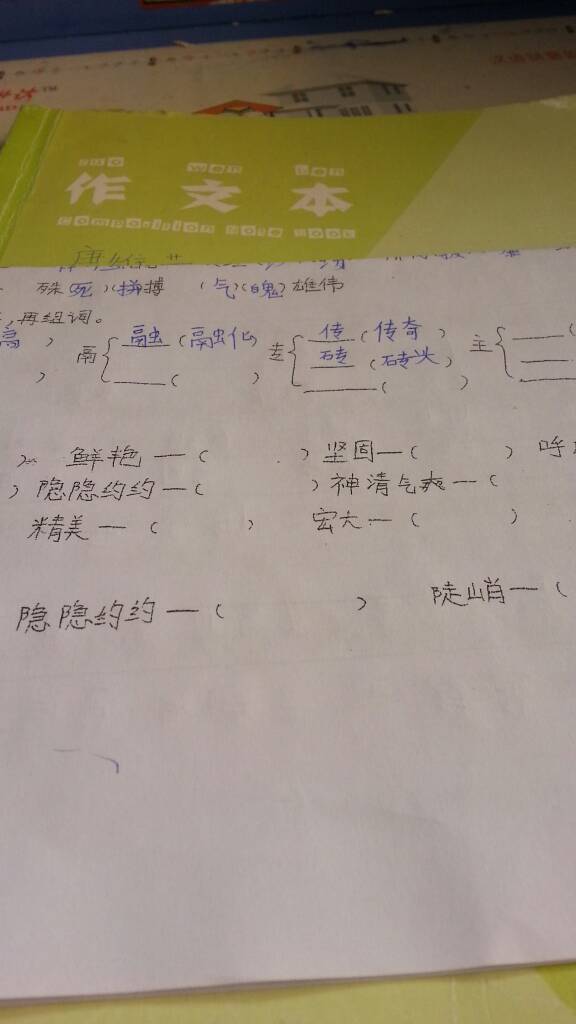 zuo wen ben
作文本
Composition Note Book
殊死)(拼搏 (气)(魄)雄伟
,再组词。
高) 鬲{ 融(融化) 专{ 传(传奇) 主{ ____(
) ____( ) 砖(砖头) ____
____( ) ____
) 鲜艳—( )坚固—( ) 呼
)隐隐约约—( )神清气爽—(
精美—( ) 宏大—( )
隐隐约约—( ) 陡峭—(